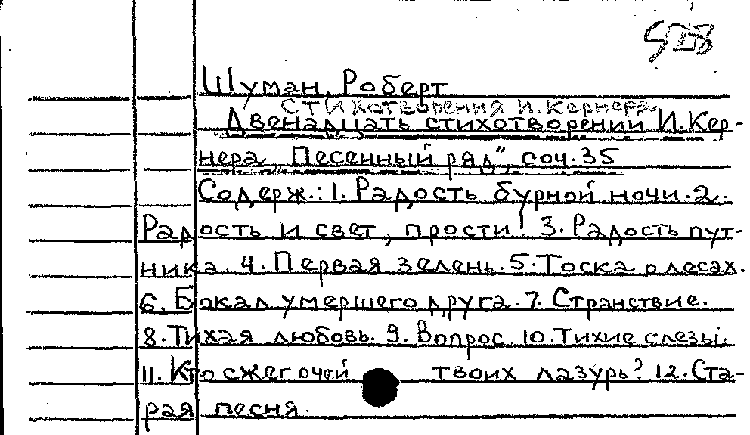 Шуман, Роберт
Стихотворения И. Кернера
Двенадцать стихотворений И. Кер-
нера „Песенный ряд", соч. 35
Содерж.: 1. Радость бурной ночи. 2.
Радость и свет, прости! 3. Радость пут-
ника. 4. Первая зелень. 5. Тоска о лесах.
6. Бокал умершего друга. 7. Странствие.
8. Тихая любовь. 9. Вопрос. 10. Тихие слезы.
11. Кто сжег очей твоих лазурь? 12. Ста-
рая песня